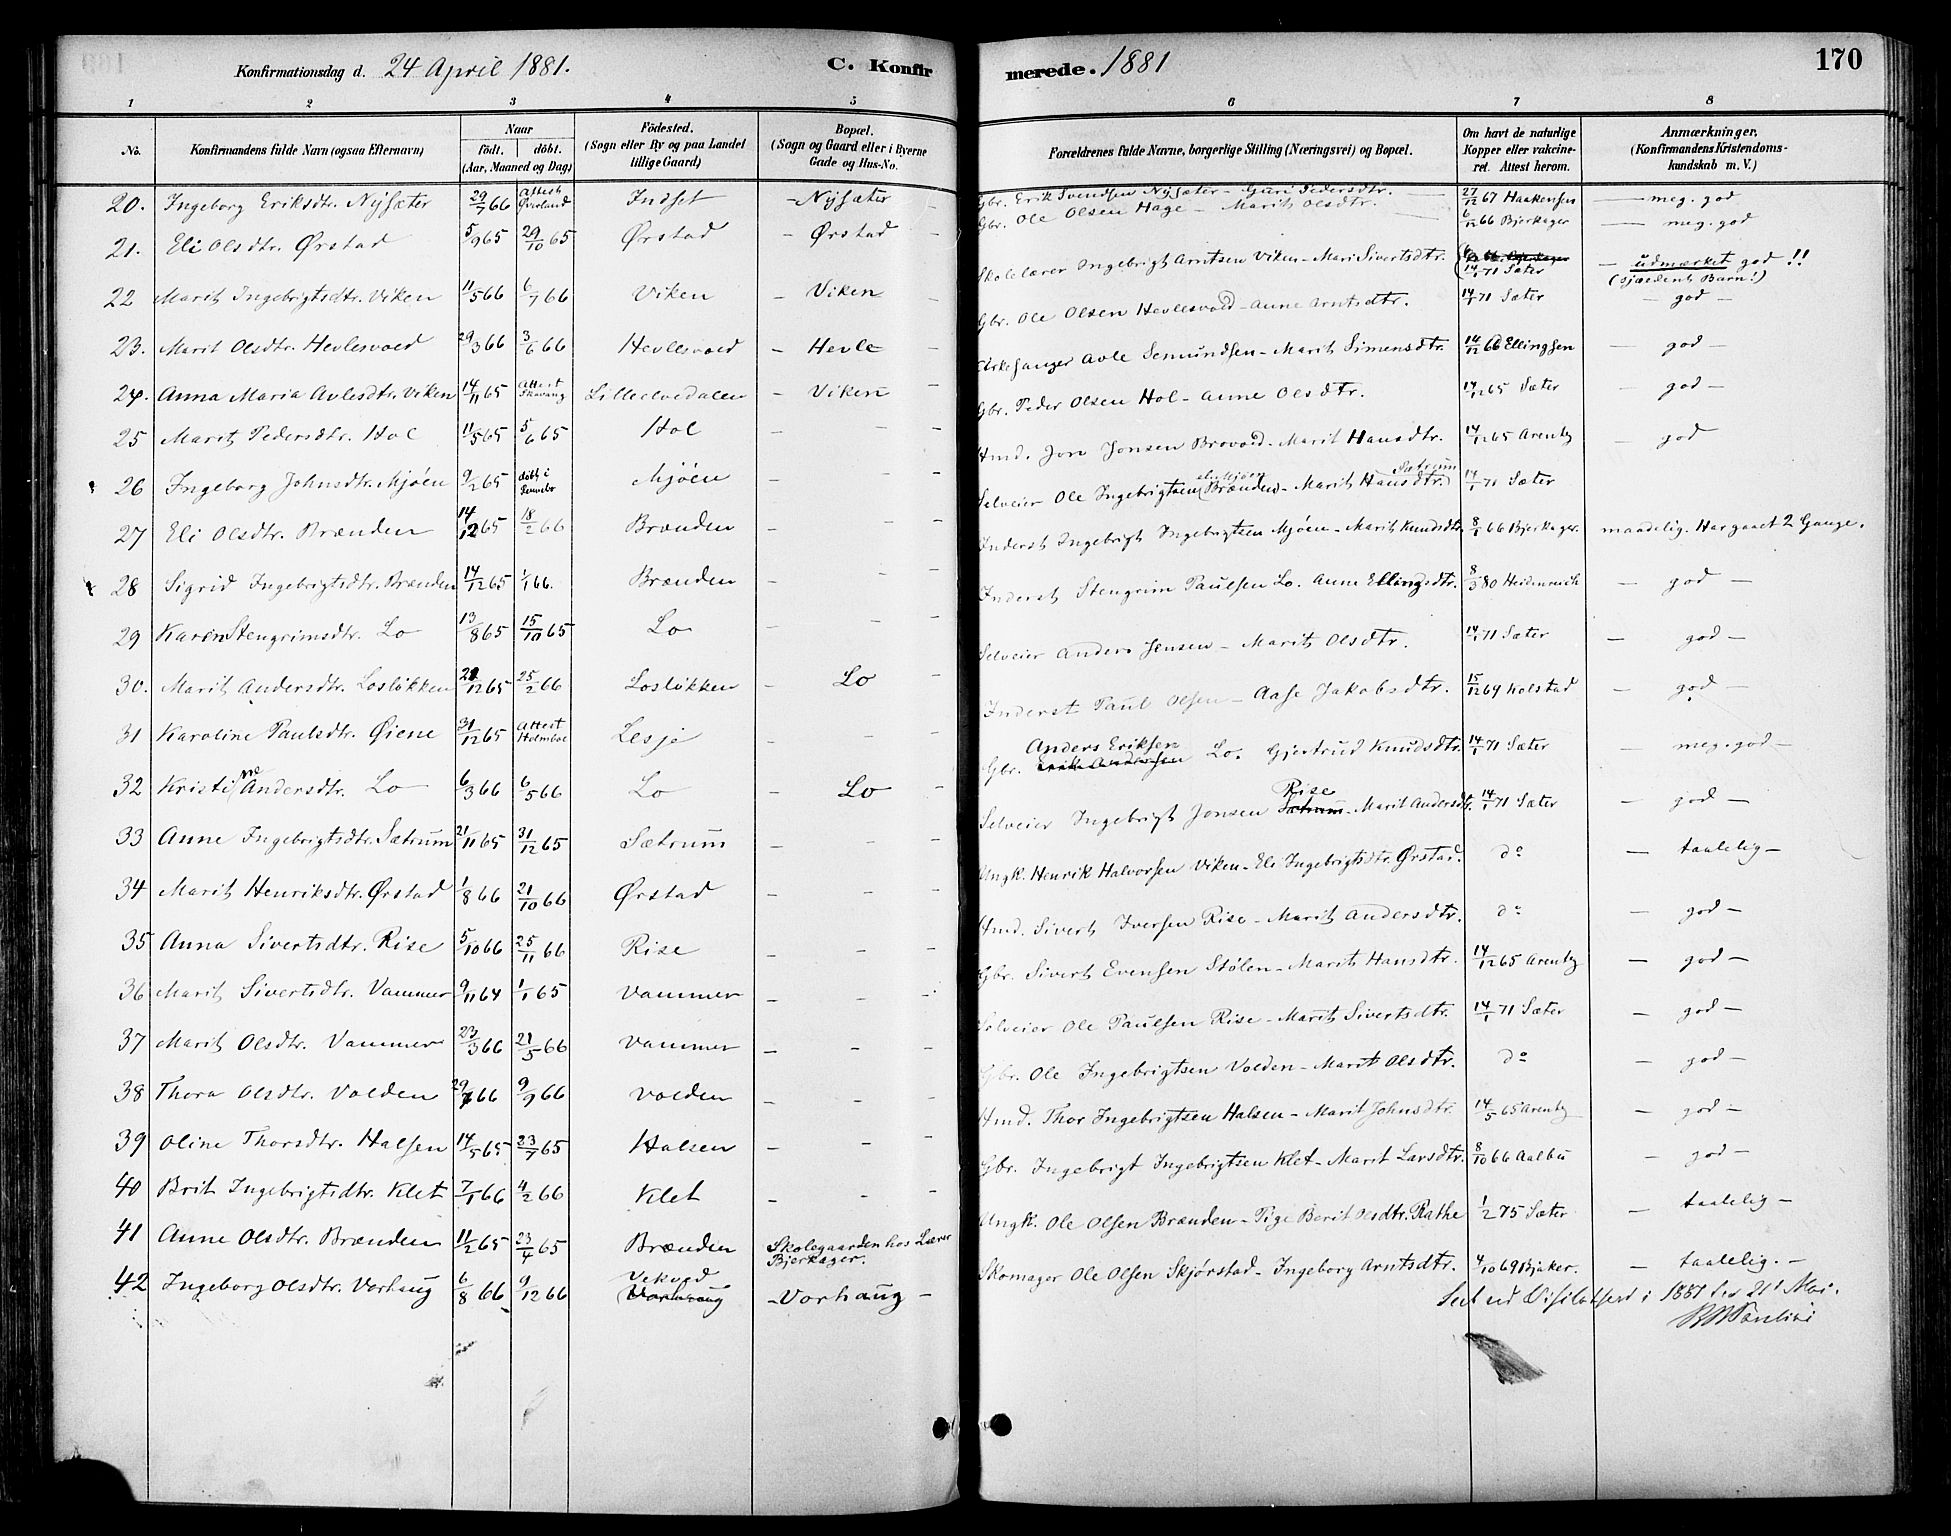 Konfirmationsdag d. 24 April 1881. C. Konfirmerede. 1881 170
1 2 3 4 5 6 7 8
No. Konfirmandens fulde Navn (ogsaa Efternavn) Naar födt. döbt. (Aar, Maaned og Dag) Födested. (Sogn eller By og paa Landet tillige Gaard) Bopæl. (Sogn og Gaard eller i Byerne Gade og Hus-No. Forældrenes fulde Navne, borgerlige Stilling (Næringsvei) og Bopæl. Om havt de naturlige Kopper eller vakcineret. Attest herom. Anmærkninger. (Konfirmandens Kristendomskundskab m. V.)
20. Ingeborg Eriksdtr. Nysæter 29/7 66 Attest Indset - Nysæter - Gbr. Erik Svendsen Nysæter - Guri Pedersdtr. 27/12 67 Haakensen — meg. god
21. Eli Olsdtr. Ørstad 5/9 65 29/10 65 Ørstad - Ørstad - Gbr. Ole Olsen Hage - Marit Olsdtr. 6/12 66 Bjerkager — meg. god
22 Marit Ingebrigtsdtr. Viken 11/5 66 6/7 66 Viken - Viken - Skolelærer Ingebrigt Arntsen Viken - Mari Sivertsdtr. 14/1 71 Sæter - udmærket god!! (sjældent Barn!)
23. Marit Olsdtr. Hevlesvold 29/3 66 3/6 66 Hevlesvold - Hevle - Gbr. Ole Olsen Hevlesvold - Anne Arntsdtr. 14/1 71 Sæter - god -
24. Anna Maria Avlesdtr. Viken 14/11 65 Attest Lilleelvedalen - Viken - Kirkesanger Avle Semundsen - Marit Simensdtr. 14/12 66 Ellingsen - god -
25 Marit Pedersdtr. Hol 11/5 65 5/6 65 Hol - - - Gbr. Peder Olsen Hol - Anne Olsdtr. 14/12 65 Sæter - god -
26 Ingeborg Johnsdtr. Mjöen 9/2 65 döbt i Mjöen - - - Hmd. Jon Jonsen Brovold - Marit Hansdtr. 14/12 65 Arentz - god
27 Eli Olsdtr. Brænden 14/12 65 18/2 66 Brænden - - - Selveier Ole Ingebrigtsen Brænden - Marit Hansdtr. Sætrum 14/1 71 Sæter
28 Sigrid Ingebrigtsdtr. Brænden 14/12 65 1/1 66. Brænden - - - Inderst Ingebrigt Ingebrigtsen Mjöen - Marit Knudsdtr. 8/1 66 Bjerkager. maadelig. Har gaaet 2 Gange.
29 Karen Stengrimsdtr. Lo 13/8 65 15/10 65 Lo - - - Inderst Stengrim Paulsen Lo. Anne Ellingsdtr. 8/3 80 Heidenreich - god -
30. Marit Andersdtr. Loslökken 21/12 65 25/2 66 Loslökken - Lo - Selveier Anders Jensen - Marit Olsdtr. 14/1 71 Sæter - god -
31 Karoline Paulsdtr. Øiene 31/12 65 Attest Holmboe Lesje - - - Inderst Paul Olsen - Aase Jakobsdtr. 15/12 69 Kolstad - god -
32 Kristine Andersdtr. Lo 6/3 66 6/5 66 Lo - Lo - Gbr. Anders Eriksen Lo. Gjertrud Knudsdtr. 14/1 71 Sæter - meg. god -
33 Anne Ingebrigtsdtr. Sætrum 21/11 65 31/12 65 Sætrum - - - Selveier Ingebrigt Jonsen Sætrum Rise - Marit Andersdtr. 14/1 71 Sæter - god -
34 Marit Henriksdtr. Ørstad 1/8 66 21/10 66 Ørstad - - - Ungk. Henrik Halvorsen Viken - Eli Ingebrigtsdtr. Ørstad. do - taalelig -
35 Anna Sivertsdtr. Rise 5/10 66 25/11 66 Rise - - - Hmd. Sivert Iversen Rise - Marit Andersdtr. do - god -
36 Marit Sivertsdtr. Vammer 9/11 64 1/1 65 Vammer - - - Gbr. Sivert Evensen Stölen - Marit Hansdtr. 14/12 65 Arentz - god -
37 Marit Olsdtr. Vammer 23/3 66 21/5 66 Vammer - - - Selveier Ole Paulsen Rise - Marit Sivertsdtr. 14/1 71 Sæter - god -
38 Thora Olsdtr. Volden 29/7 66 9/9 66 Volden - - - Gbr. Ole Ingebrigtsen Volden - Marit Olsdtr. do - god -
39 Oline Thorsdtr. Halsen 14/5 65 23/7 65 Halsen - - - Hmd. Thor Ingebrigtsen Halsen - Marit Johnsdtr. 14/5 65 Arentz - god -
40 Brit Ingebrigtsdtr. Klet 7/1 66 4/2 66 Klet - - - Gbr. Ingebrigt Ingebrigtsen Klet - Marit Larsdtr. 8/10 66 Aalbu - god -
41 Anne Olsdtr. Brænden 11/2 65 23/4 65 Brænden Skolegaarden hos Lærer Bjerkager. Ungk. Ole Olsen Brænden - Pige Berit Olsdtr. Rathe 1/2 75 Sæter - taalelig -
42 Ingeborg Olsdtr. Vorhaug 6/8 66 9/12 66 Vorhaug - Vorhaug - Skomager Ole Olsen Skjørstad - Ingeborg Arntsdtr. 4/10 69 Bjerker. - taalelig. -
1881 den 21' Mai.